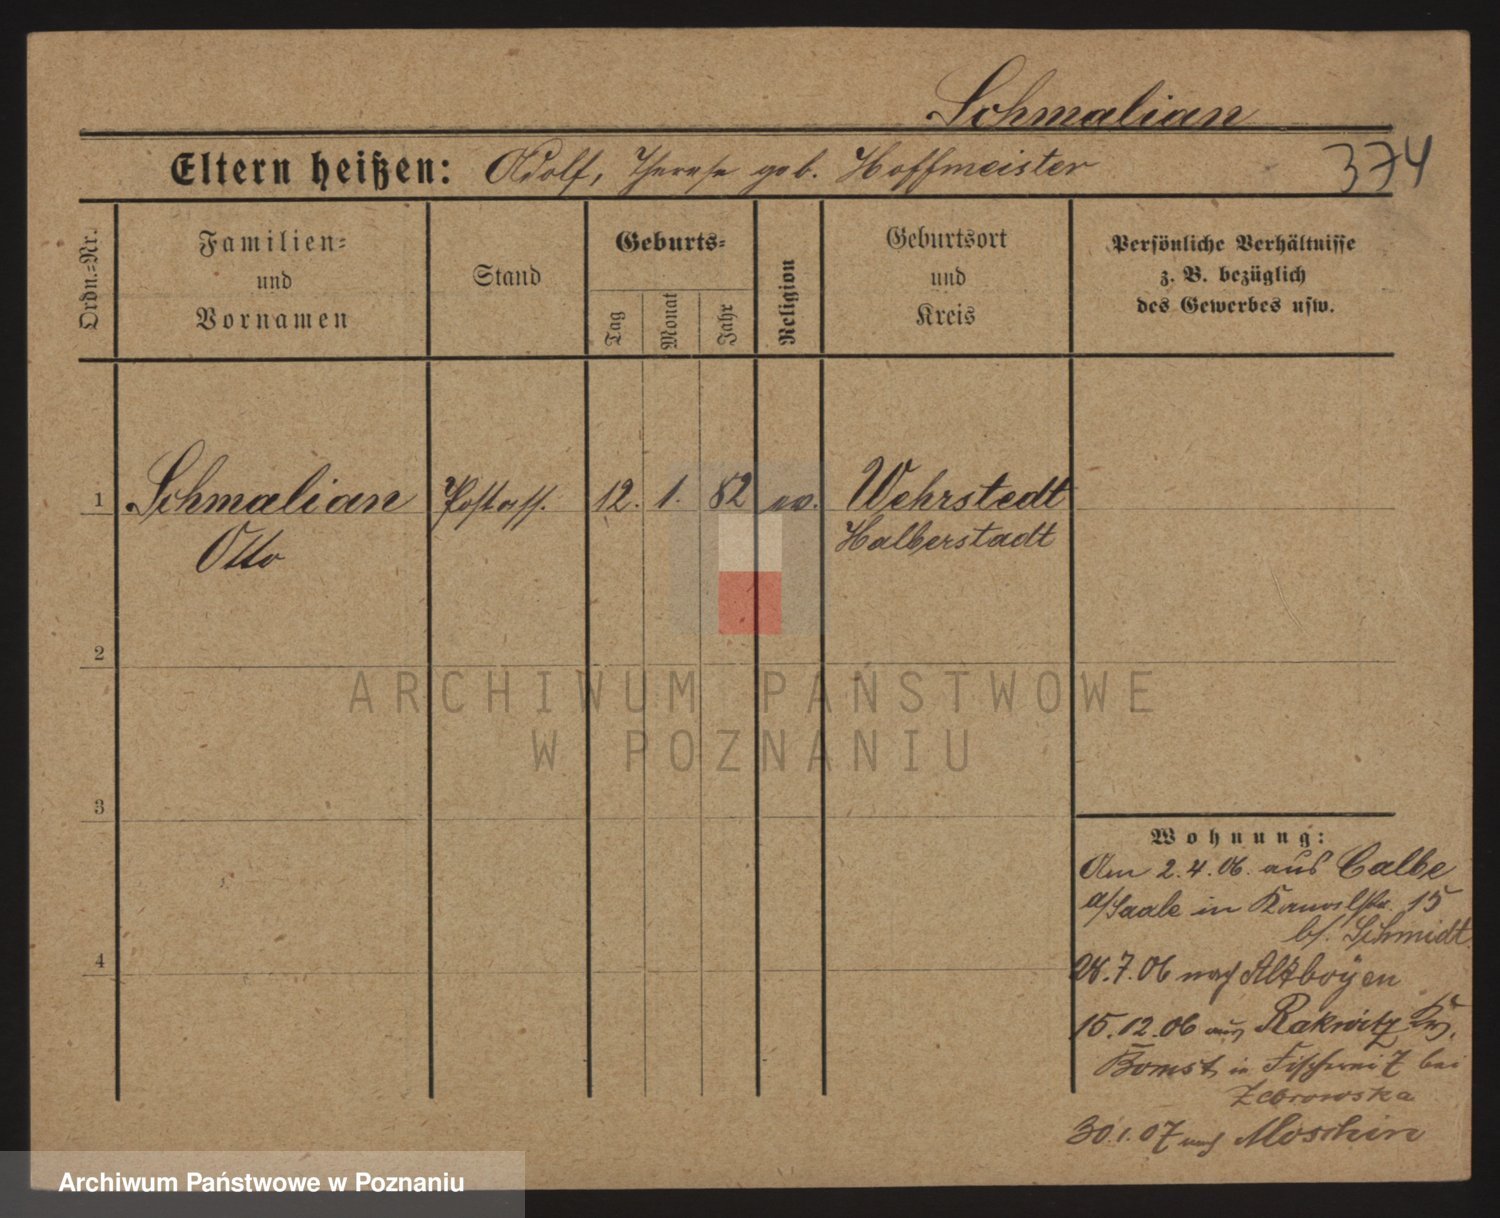 Schmalian
Eltern heißen: Adolf, Therese geb. Hoffmeister
374
Ordn.=Nr.
Familien=
und
Vornamen
Stand
Geburts=
Tag
Monat
Jahr
Religion
Geburtsort
und
Kreis
Persönliche Verhältnisse
z. B. bezüglich
des Gewerbes usw.
1 Schmalian Postass. 12. 1. 82 ev. Wehrstedt
Otto Halberstadt
2
ARCHIWUM PAŃSTWOWE
W POZNANIU
3
Wohnung:
Am 2.4.06. aus Calbe
a/Saale in 15
b/. Schmidt.
4
28.7.06 nach Altboyen
15.12.06 aus Rakwitz Krs.
Bomst in Fischerei 7 bei
Zebrowska
30.1.07 nach Moschin
Archiwum Państwowe w Poznaniu